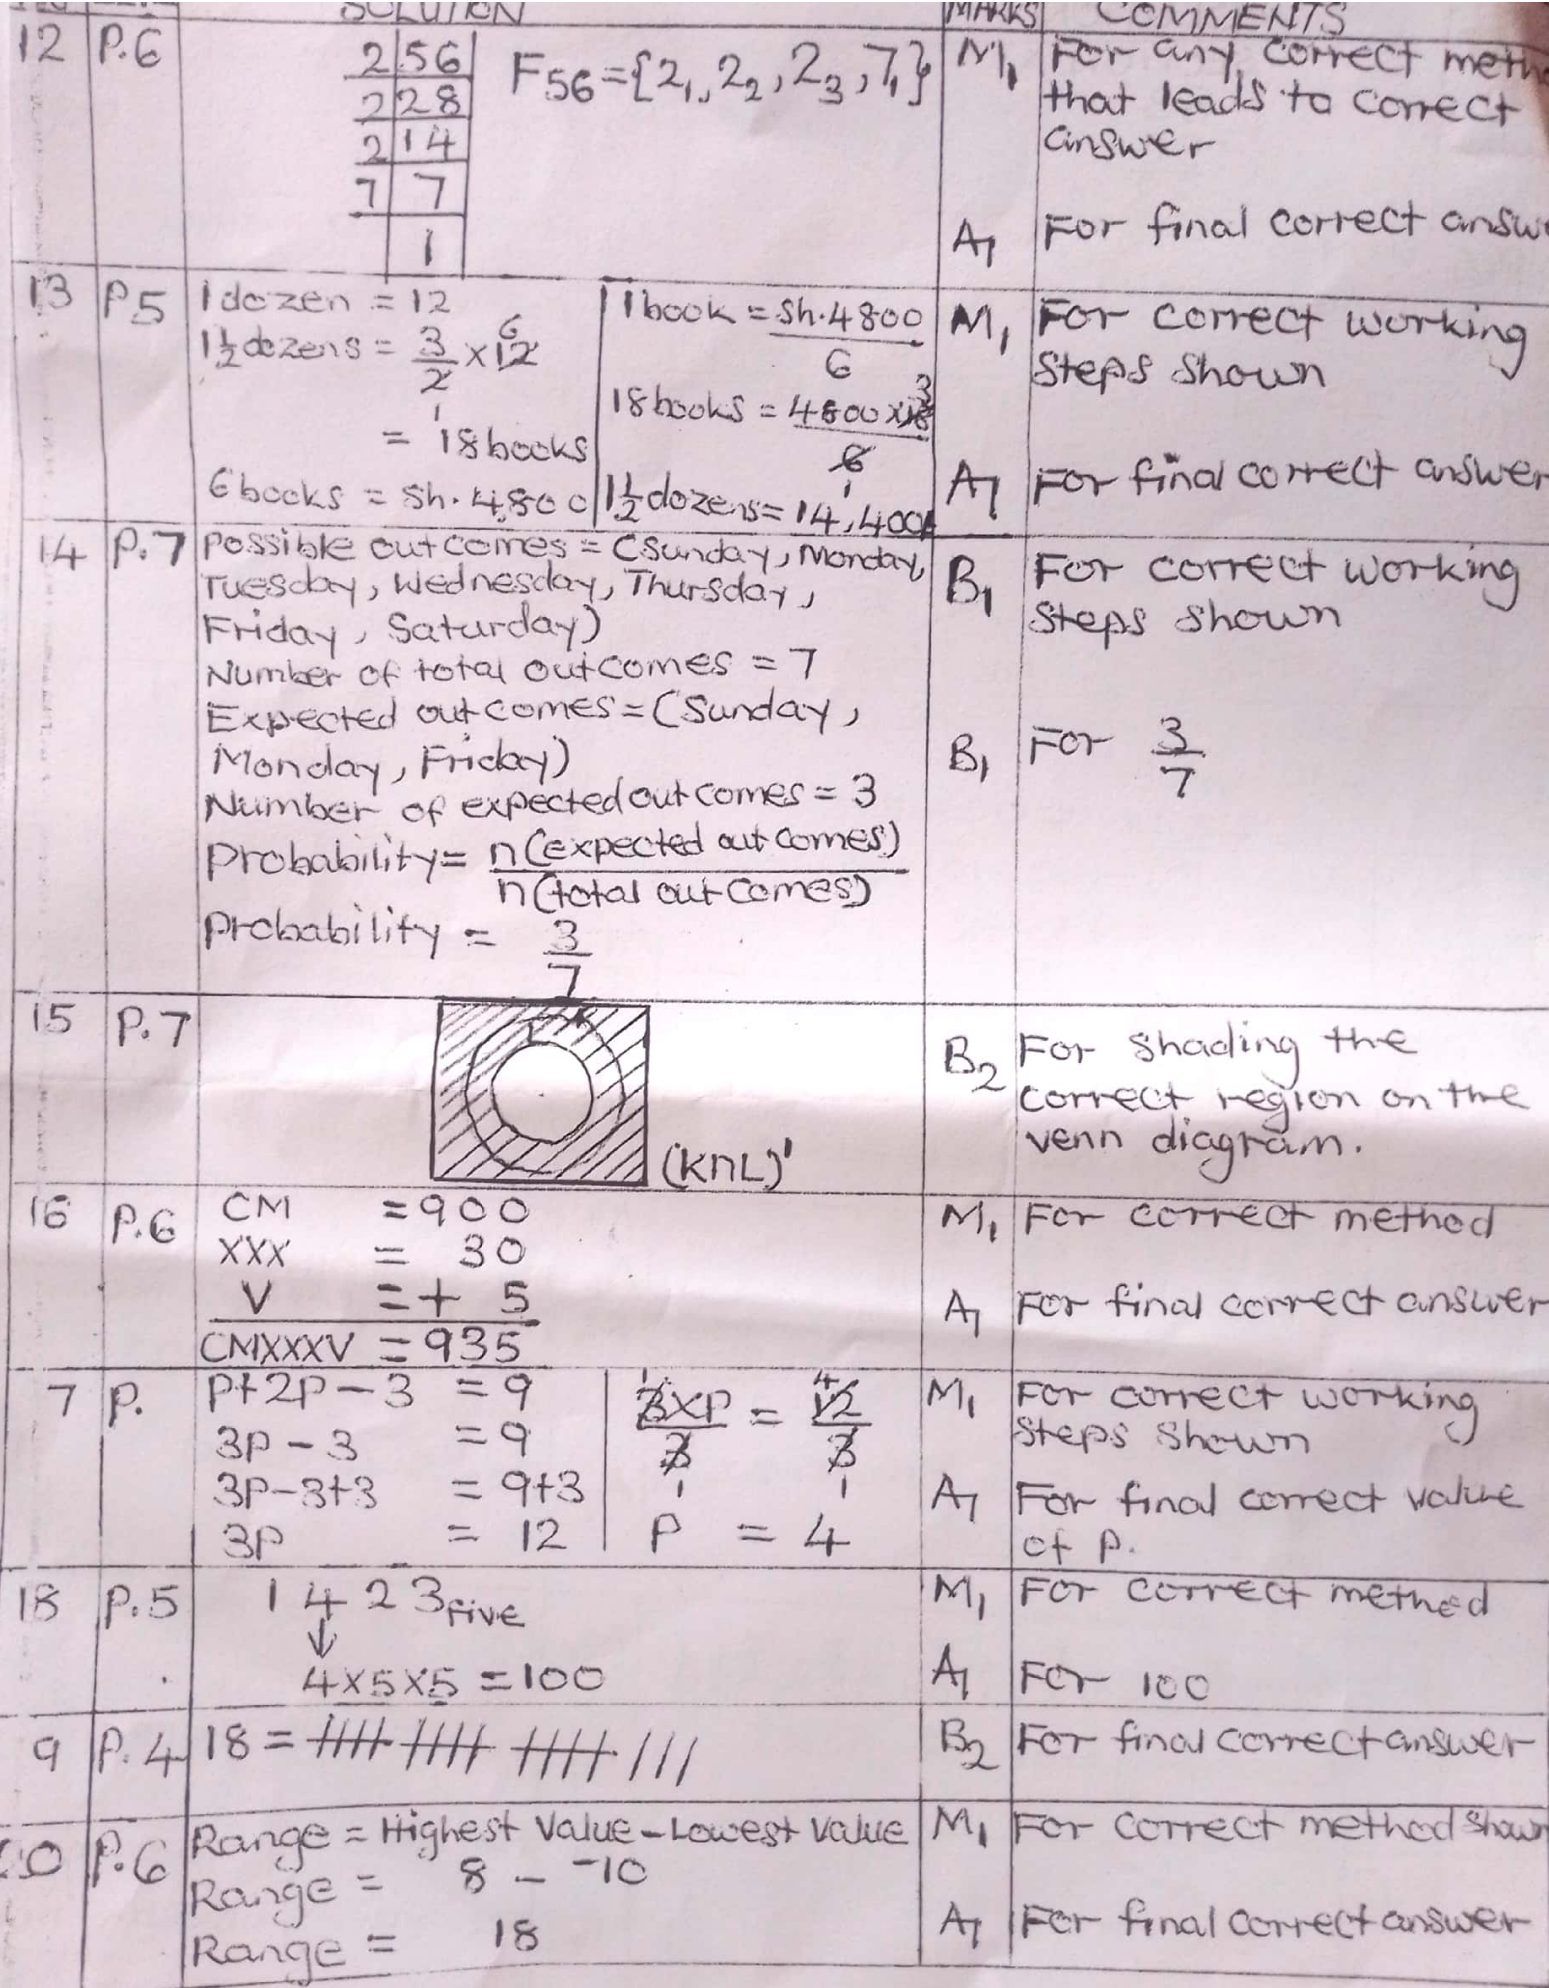 SOLUTION MARKS COMMENTS
12 P.6
2 56
2 28
2 14
7 7
1
F56={2₁, 2₂, 2₃, 7₁}
M₁ For any correct
that leads to correct
answer
A₁ For final correct
13 P.5
1 dozen = 12
1½ dozens = 3/2 × 12 6
1
= 18 books
6 books = Sh. 4,800
1 book = Sh. 4800
6
18 books = 4800 × 18 3
6
1
1½ dozens = 14,400/=
M₁ For correct working
steps shown
A₁ For final correct answer
14 P.7
Possible outcomes = (Sunday, Monday,
Tuesday, Wednesday, Thursday,
Friday, Saturday)
Number of total outcomes = 7
Expected outcomes = (Sunday,
Monday, Friday)
Number of expected outcomes = 3
Probability = n(expected outcomes)
n(total outcomes)
Probability = 3
7
B₁ For correct working
steps shown
B₁ For 3/7
15 P.7
(K∩L)'
B₂ For shading the
correct region on the
venn diagram.
16 P.6
CM = 900
XXX = 30
V = + 5
CMXXXV = 935
M₁ For correct method
A₁ For final correct answer
7 P.
P+2P-3 = 9
3P-3 = 9
3P-3+3 = 9+3
3P = 12
1 4
3×P = 12
3 3
1 1
P = 4
M₁ For correct working
steps shown
A₁ For final correct value
of P.
18 P.5
1 4 2 3five
↓
4×5×5 = 100
M₁ For correct method
A₁ For 100
9 P.4
18 = //// //// //// ///
B₂ For final correct answer
0 P.6
Range = Highest Value - Lowest Value
Range = 8 - ⁻10
Range = 18
M₁ For correct method shown
A₁ For final correct answer